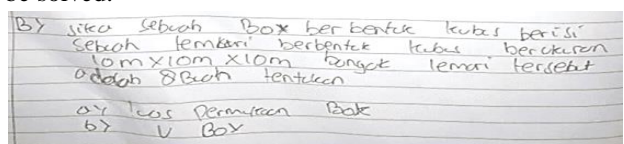 be solved.
B> jika sebuah Box berbentuk kubus berisi
sebuah lemari berbentuk kubus berukuran
10m x 10m x 10m banyak lemari tersebut
adalah 8 Buah tentukan
a> luas permukaan Bok
b> V Box